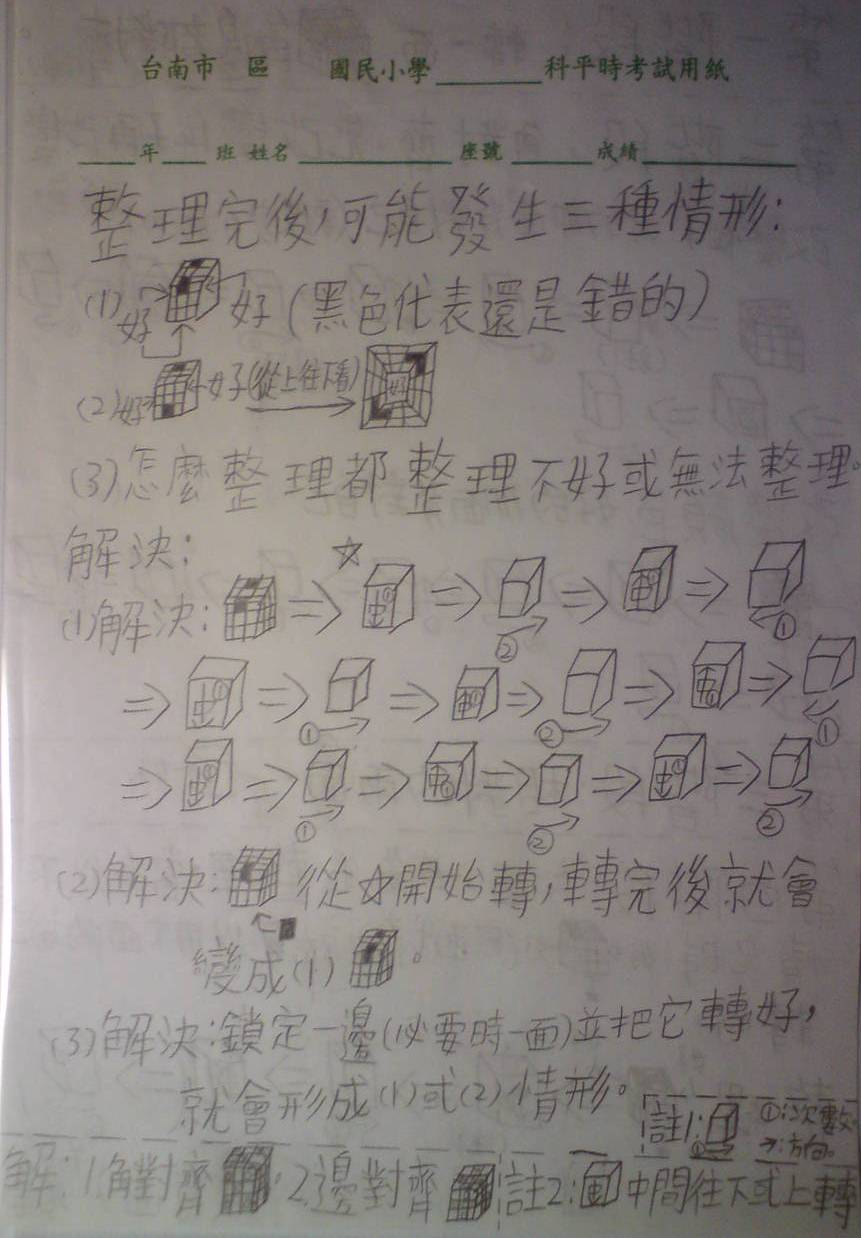 台南市 區 國民小學 科平時考試用紙
年 班 姓名 座號 成績
整理完後,可能發生三種情形:
(1) 好 好 (黑色代表還是錯的)
(2) 好 好 (從上往下看) 好
(3) 怎麼整理都整理不好或無法整理。
解決:
(1)解決: ⇒ ☆ ⇒ ② ⇒ ⇒ ①
⇒ ⇒ ① ⇒ ⇒ ② ⇒ ⇒ ①
⇒ ⇒ ① ⇒ ⇒ ② ⇒ ⇒ ②
(2)解決: 從☆開始轉,轉完後就會
變成(1) 。
(3)解決:鎖定一邊(必要時一面)並把它轉好,
就會形成(1)或(2)情形。
註1: ① ①:次數。
→:方向。
解:1.角對齊 2.邊對齊 註2: 中間往下或上轉